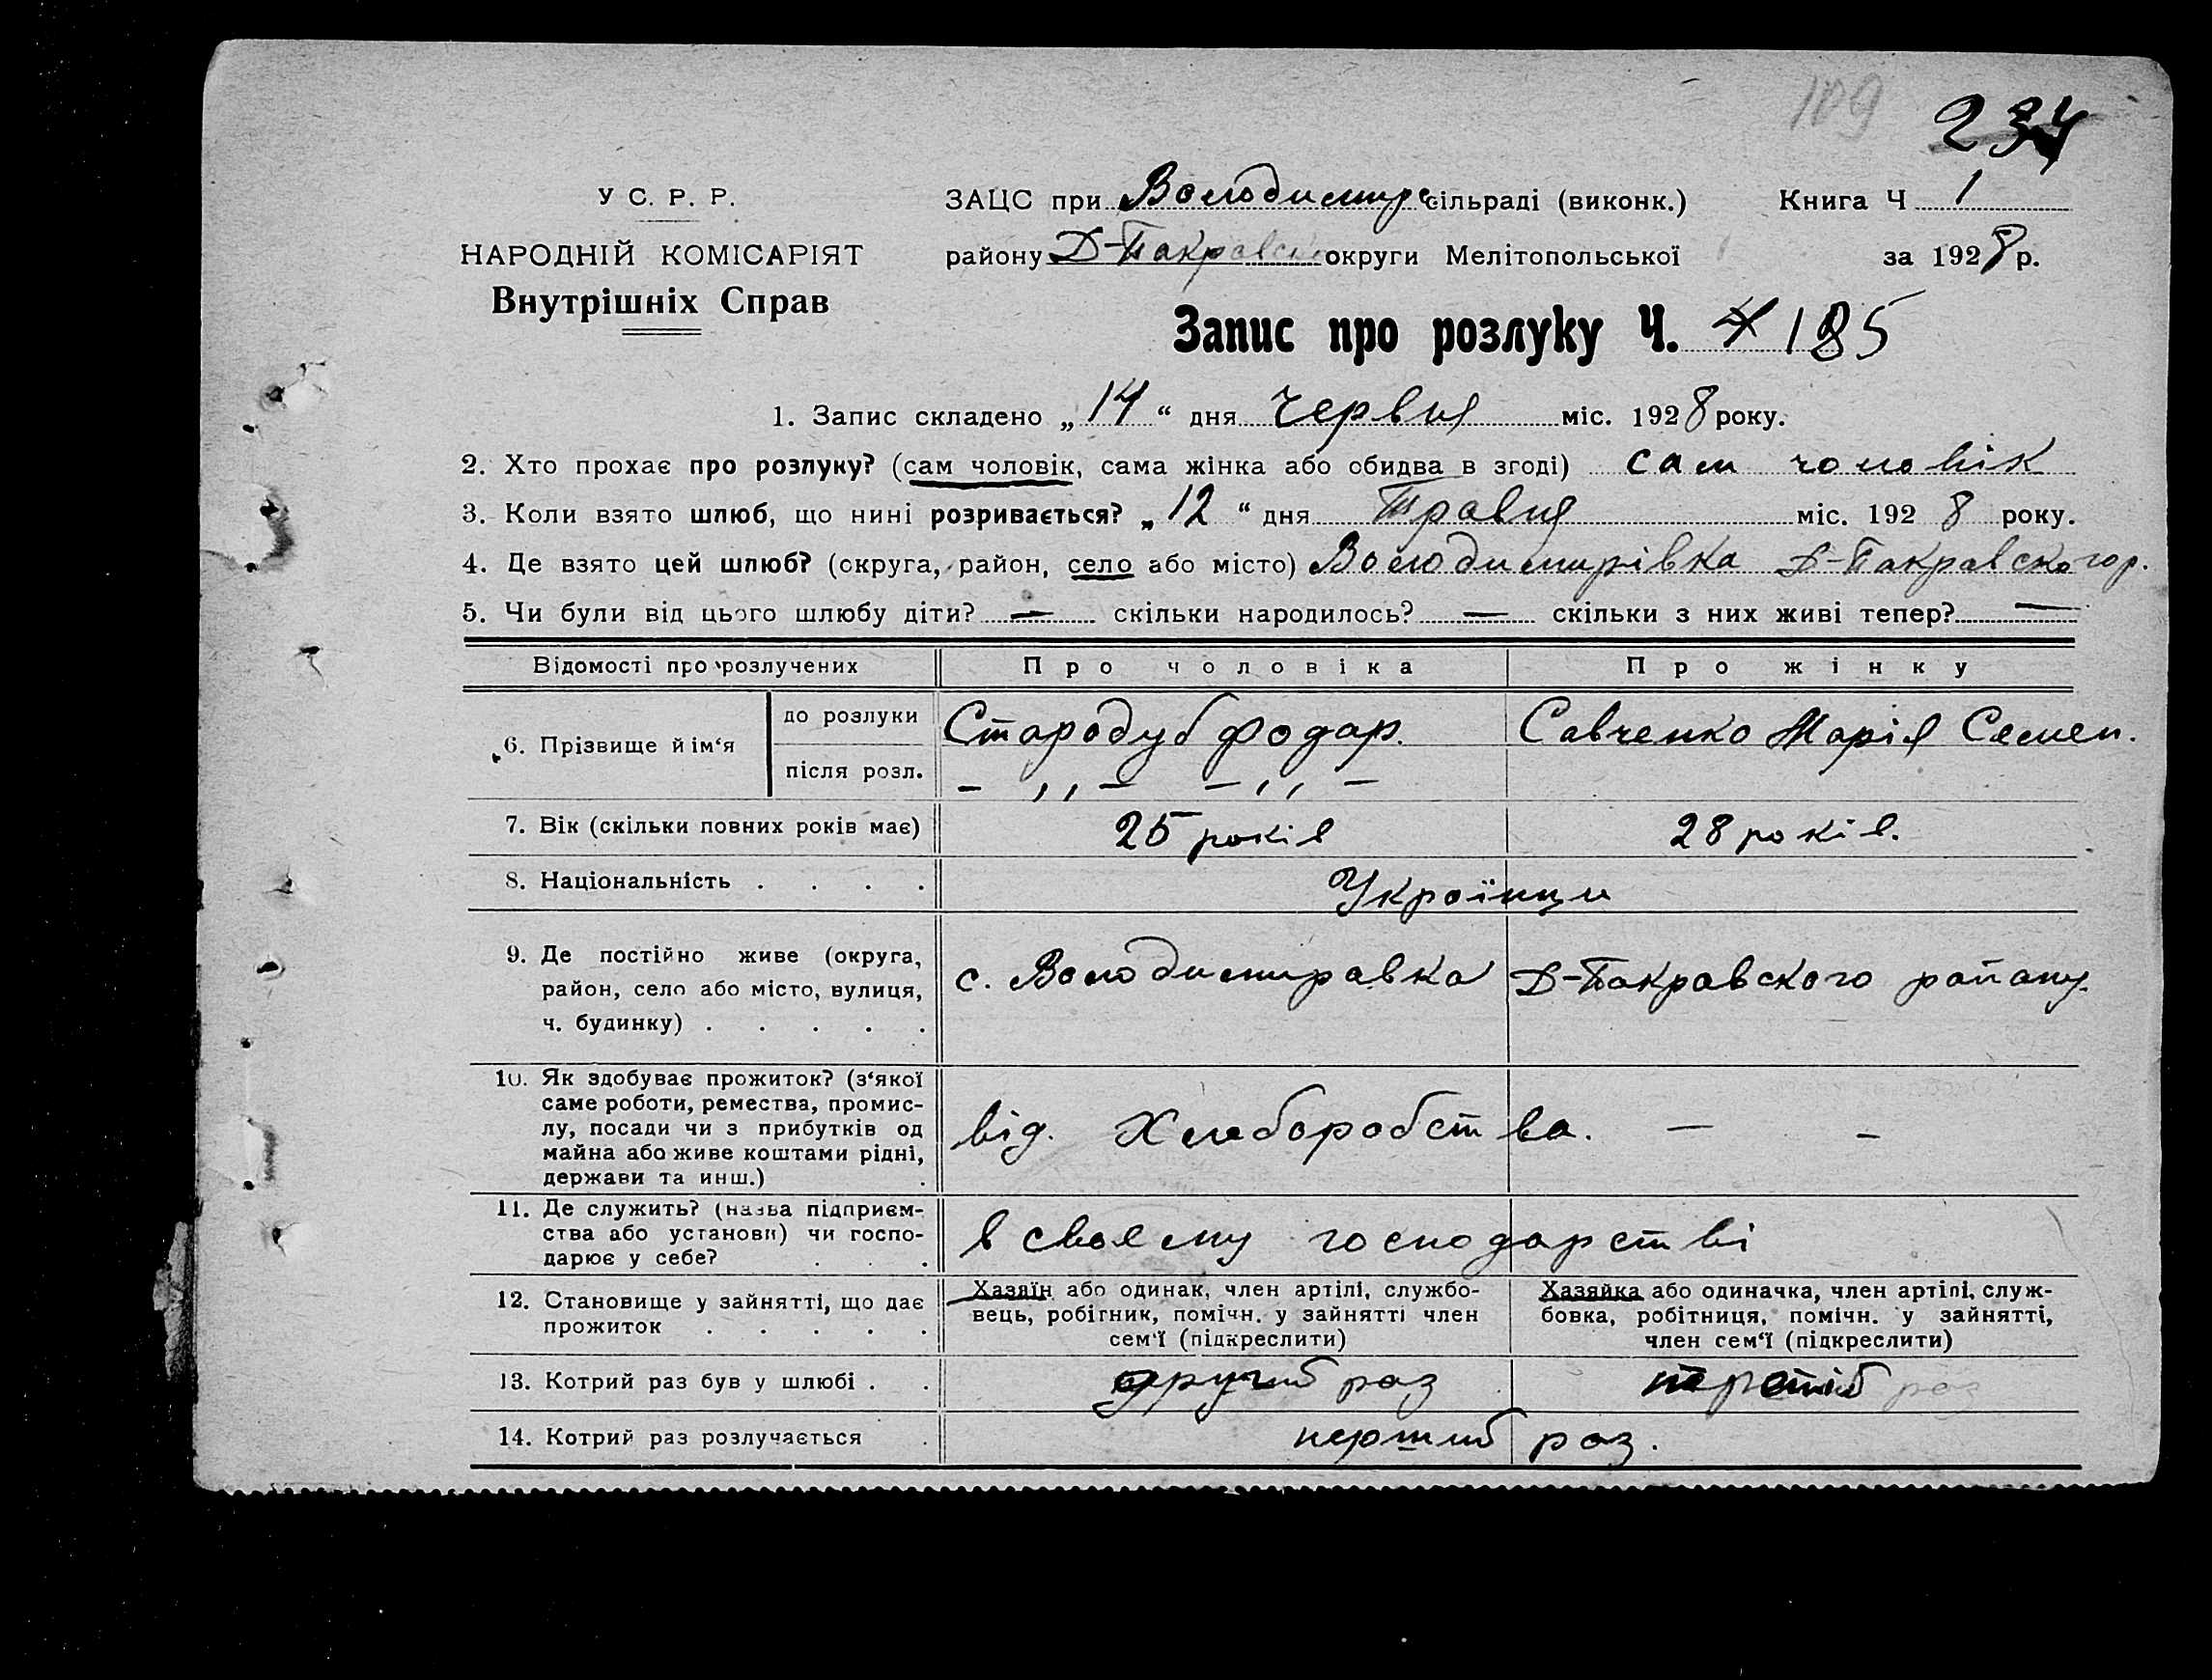 109
234
У С. Р. Р.
НАРОДНІЙ КОМІСАРІЯТ
Внутрішніх Справ
ЗАЦС при Володимирс сільраді (виконк.) Книга Ч 1
району Д-Покровск округи Мелітопольської за 1928 р.
Запис про розлуку Ч. 4 185
1. Запис складено „14“ дня червня міс. 1928 року.
2. Хто прохає про розлуку? (сам чоловік, сама жінка або обидва в згоді) сам чоловік
3. Коли взято шлюб, що нині розривається? „12“ дня травня міс. 1928 року.
4. Де взято цей шлюб? (округа, район, село або місто) Володимирівка Д-Покравского р.
5. Чи були від цього шлюбу діти? — скільки народилось? — скільки з них живі тепер? —
Відомості про розлучених Про чоловіка Про жінку
6. Прізвище й ім‘я до розлуки Стародуб Федор. Савченко Марія Семен.
після розл. — ,, — — ,, —
7. Вік (скільки повних років має) 25 років 28 років.
8. Національність . . . . Українци
9. Де постійно живе (округа,
район, село або місто, вулиця,
ч. будинку) . . . . . с. Володимировка Д-Покравского району.
10. Як здобуває прожиток? (з‘якої
саме роботи, ремества, промис-
лу, посади чи з прибутків од
майна або живе коштами рідні,
держави та инш.) . від. Хлеборобства. — —
11. Де служить? (назва підприєм-
ства або установи) чи госпо-
дарює у себе? . . . в своєму господарстві
12. Становище у зайнятті, що дає
прожиток . . . . .
Хазяїн або одинак, член артілі, службо-
вець, робітник, помічн. у зайнятті член
сем‘ї (підкреслити)
Хазяйка або одиначка, член артілі, служ-
бовка, робітниця, помічн. у зайнятті,
член сем‘ї (підкреслити)
13. Котрий раз був у шлюбі . . другий раз раз
14. Котрий раз розлучається . перший раз.